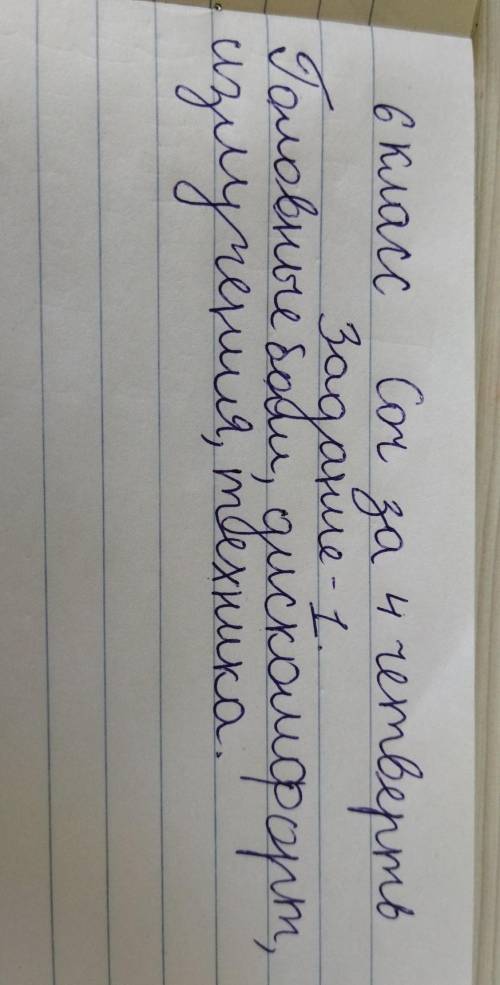 6 класс Соч за 4 четверть
Задание-1.
Головные боли, дискомфорт,
излучения, техника.